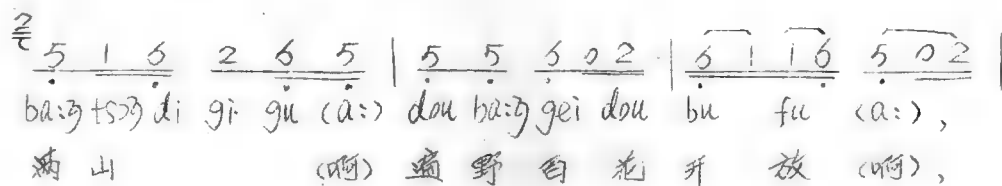 5 1 6 2 6 5 | 5 5 6 0 2 | 6 1 1 6 5 0 2 |
ba:ʒ tsɔʒ di gi gu (a:) dou ba:ʒ gei dou bu fu (a:),
满 山 (啊) 遍 野 百 花 开 放 (啊),